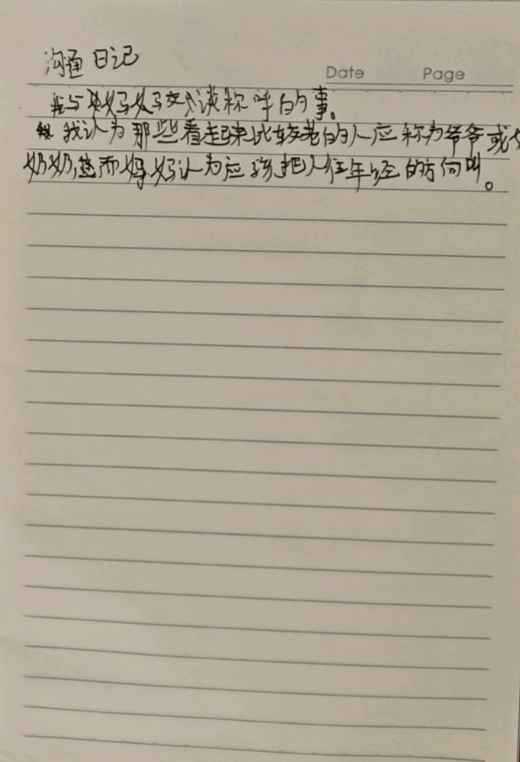 沟通日记
Date Page
我与妈妈交谈称呼的事。
我认为那些看起来比较老的人应称为爷爷或
奶奶,然而妈妈认为应该把人往年经的方向叫。